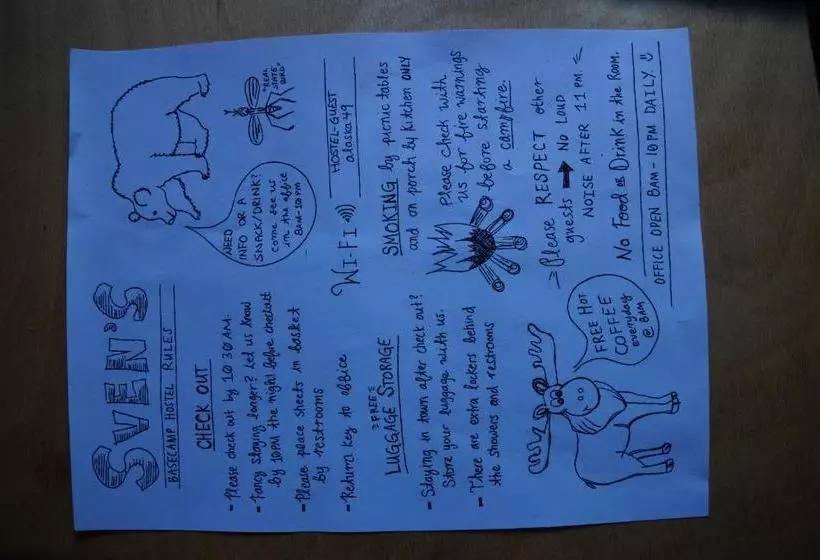 SVEN'S
BASECAMP HOSTEL RULES
CHECK OUT
- Please check out by 10:30AM.
- Fancy staying longer? Let us know
by 10PM the night before checkout
- Please place sheets in basket
by restrooms
- Return key to office
"FREE"
LUGGAGE STORAGE
- Staying in town after check out?
Store your luggage with us.
- There are extra lockers behind
the showers and restrooms
FREE HOT
COFFEE
everyday
@ 8AM
"REAL
STATE
BIRD"
NEED
INFO OR A
SNACK/DRINK?
come see us
in the office
8AM-10PM
WI-FI
HOSTEL-GUEST
alaska49
SMOKING by picnic tables
and on porch by kitchen ONLY
Please check with
us for fire warnings
before starting
a campfire.
Please RESPECT other
guests ➡ NO LOUD
NOISE AFTER 11 PM.
No Food or Drink in the Room.
OFFICE OPEN 8AM-10PM DAILY ☺